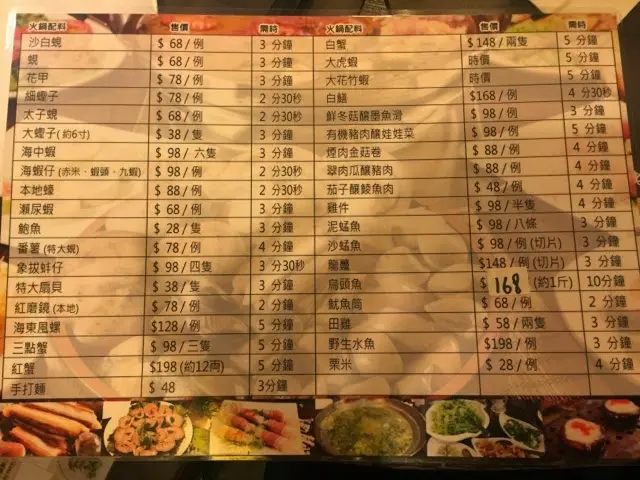 火鍋配料 售價 需時
沙白蜆 $ 68 / 例 3 分鐘
蜆 $ 68 / 例 3 分鐘
花甲 $ 78 / 例 3 分鐘
細蟶子 $ 78 / 例 2 分30秒
太子蜆 $ 68 / 例 2 分30秒
大蟶子( 約6寸) $ 38 / 隻 3 分鐘
海中蝦 $ 98 / 六隻 3 分鐘
海蝦仔 (赤米、蝦頭、九蝦) $ 98 / 例 2 分30秒
本地蠔 $ 88 / 例 2 分30秒
瀨尿蝦 $ 68 / 例 3 分鐘
鮑魚 $ 28 / 隻 3 分鐘
番薯 (特大蜆) $ 78 / 例 4 分鐘
象拔蚌仔 $ 98 / 四隻 3 分30秒
特大扇貝 $ 38 / 隻 3 分鐘
紅磨鏡 (本地) $ 78 / 例 2 分鐘
海東風螺 $128 / 例 5 分鐘
三點蟹 $ 98 / 三隻 5 分鐘
紅蟹 $198 (約12両) 5 分鐘
手打麵 $ 48 3分鐘
火鍋配料 售價 需時
白蟹 $ 148 / 兩隻 5 分鐘
大虎蝦 時價 5 分鐘
大花竹蝦 時價 5 分鐘
白鱔 $168 / 例 4 分30秒
鮮冬菇釀墨魚滑 $ 98 / 例 3 分鐘
有機豬肉釀娃娃菜 $ 98 / 例 5 分鐘
煙肉金菇卷 $ 88 / 例 4 分鐘
翠肉瓜釀豬肉 $ 88 / 例 4 分鐘
茄子釀鯪魚肉 $ 48 / 例 4 分鐘
雞件 $ 98 / 半隻 4 分鐘
泥鯭魚 $ 98 / 八條 3 分鐘
沙鯭魚 $ 98 / 例 (切片) 3 分鐘
龍躉 $148 / 例 (切片) 3 分鐘
烏頭魚 $ 168 (約1斤) 10分鐘
魷魚筒 $ 68 / 例 2 分鐘
田雞 $ 58 / 兩隻 3 分鐘
野生水魚 $198 / 例 3 分鐘
粟米 $ 28 / 例 4 分鐘